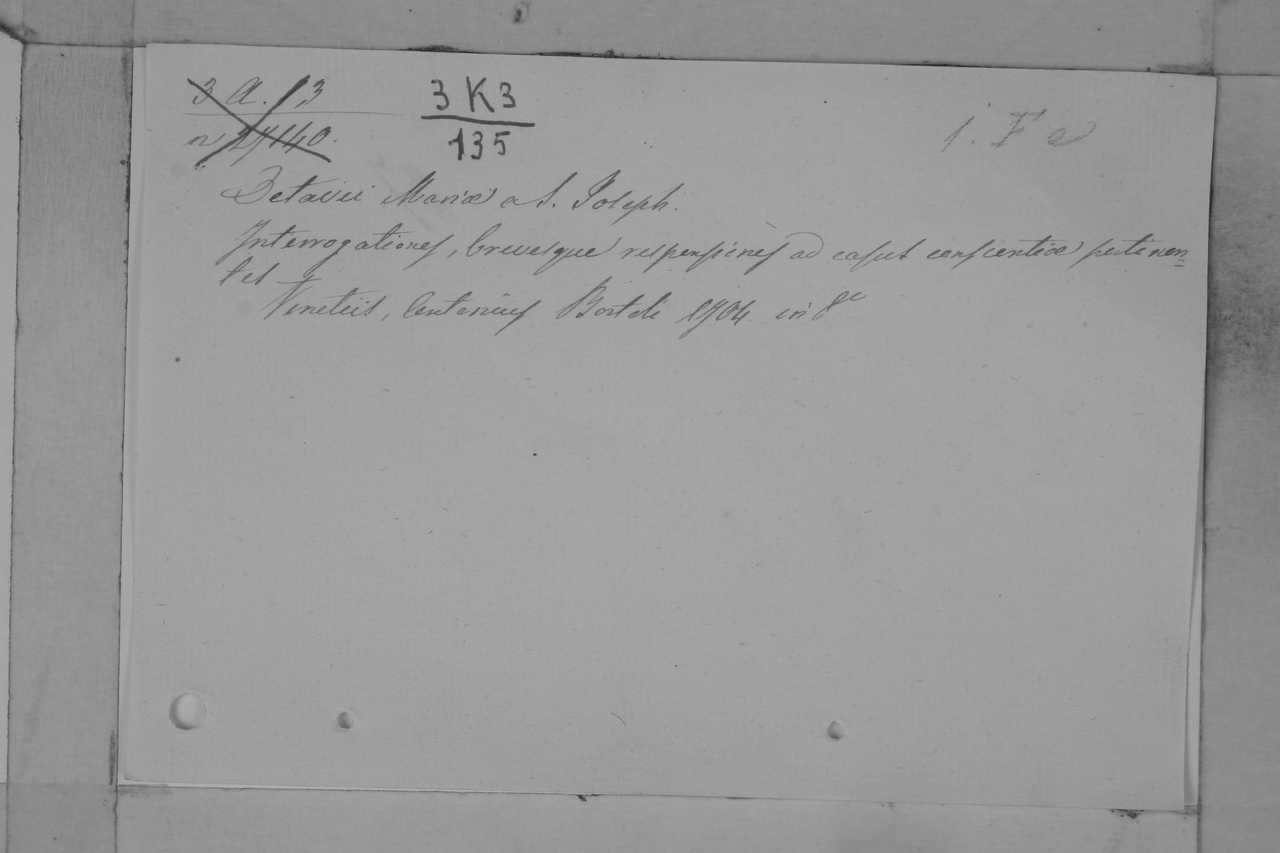 3 a. 13
3 K 3
135
1. F a
Octavii Mariæ a S. Joseph.
Interrogationes, brevesque responsiones ad casus conscientiæ pertinen=
tes
Venetiis, Antonius Bortoli 1704 in 8º